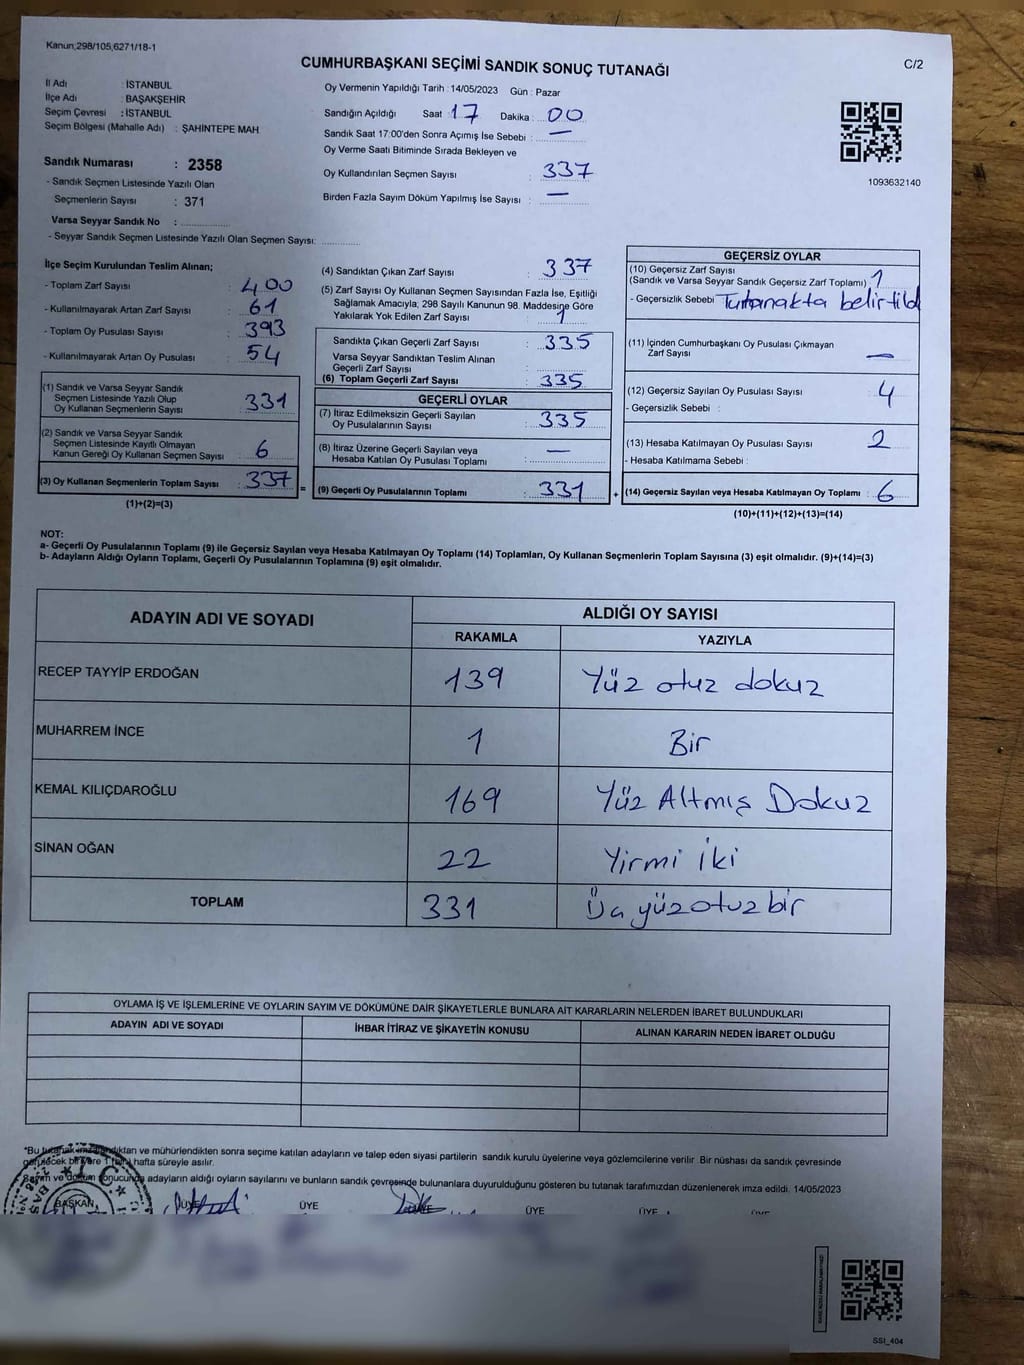 Kanun;298/105,6271/18-1
CUMHURBAŞKANI SEÇİMİ SANDIK SONUÇ TUTANAĞI
C/2
İl Adı : İSTANBUL
İlçe Adı : BAŞAKŞEHİR
Seçim Çevresi : İSTANBUL
Seçim Bölgesi (Mahalle Adı) : ŞAHİNTEPE MAH
Oy Vermenin Yapıldığı Tarih : 14/05/2023 Gün : Pazar
Sandığın Açıldığı Saat 17 Dakika : 00
Sandık Saat 17:00'den Sonra Açımış İse Sebebi : —
Oy Verme Saati Bitiminde Sırada Bekleyen ve
Oy Kullandırılan Seçmen Sayısı : 337
Birden Fazla Sayım Döküm Yapılmış İse Sayısı : —
1093632140
Sandık Numarası : 2358
- Sandık Seçmen Listesinde Yazılı Olan
Seçmenlerin Sayısı : 371
Varsa Seyyar Sandık No :
- Seyyar Sandık Seçmen Listesinde Yazılı Olan Seçmen Sayısı:
İlçe Seçim Kurulundan Teslim Alınan;
- Toplam Zarf Sayısı : 400
- Kullanılmayarak Artan Zarf Sayısı : 61
- Toplam Oy Pusulası Sayısı : 393
- Kullanılmayarak Artan Oy Pusulası : 54
(1) Sandık ve Varsa Seyyar Sandık
Seçmen Listesinde Yazılı Olup
Oy Kullanan Seçmenlerin Sayısı : 331
(2) Sandık ve Varsa Seyyar Sandık
Seçmen Listesinde Kayıtlı Olmayan
Kanun Gereği Oy Kullanan Seçmen Sayısı : 6
(3) Oy Kullanan Seçmenlerin Toplam Sayısı : 337
(1)+(2)=(3)
(4) Sandıktan Çıkan Zarf Sayısı : 337
(5) Zarf Sayısı Oy Kullanan Seçmen Sayısından Fazla İse, Eşitliği
Sağlamak Amacıyla; 298 Sayılı Kanunun 98. Maddesine Göre
Yakılarak Yok Edilen Zarf Sayısı : 1
Sandıkta Çıkan Geçerli Zarf Sayısı : 335
Varsa Seyyar Sandıktan Teslim Alınan
Geçerli Zarf Sayısı :
(6) Toplam Geçerli Zarf Sayısı : 335
GEÇERLİ OYLAR
(7) İtiraz Edilmeksizin Geçerli Sayılan
Oy Pusulalarının Sayısı : 335
(8) İtiraz Üzerine Geçerli Sayılan veya
Hesaba Katılan Oy Pusulası Toplamı : —
= (9) Geçerli Oy Pusulalarının Toplamı : 331
GEÇERSİZ OYLAR
(10) Geçersiz Zarf Sayısı
(Sandık ve Varsa Seyyar Sandık Geçersiz Zarf Toplamı) : 1
- Geçersizlik Sebebi : Tutanakta belirtild
(11) İçinden Cumhurbaşkanı Oy Pusulası Çıkmayan
Zarf Sayısı : —
(12) Geçersiz Sayılan Oy Pusulası Sayısı : 4
- Geçersizlik Sebebi :
(13) Hesaba Katılmayan Oy Pusulası Sayısı : 2
- Hesaba Katılmama Sebebi :
+ (14) Geçersiz Sayılan veya Hesaba Katılmayan Oy Toplamı : 6
(10)+(11)+(12)+(13)=(14)
NOT:
a- Geçerli Oy Pusulalarının Toplamı (9) ile Geçersiz Sayılan veya Hesaba Katılmayan Oy Toplamı (14) Toplamları, Oy Kullanan Seçmenlerin Toplam Sayısına (3) eşit olmalıdır. (9)+(14)=(3)
b- Adayların Aldığı Oyların Toplamı, Geçerli Oy Pusulalarının Toplamına (9) eşit olmalıdır.
ADAYIN ADI VE SOYADI
ALDIĞI OY SAYISI
RAKAMLA YAZIYLA
RECEP TAYYİP ERDOĞAN 139 Yüz otuz dokuz
MUHARREM İNCE 1 Bir
KEMAL KILIÇDAROĞLU 169 Yüz Altmış Dokuz
SİNAN OĞAN 22 Yirmi İki
TOPLAM 331 Üç yüzotuzbir
OYLAMA İŞ VE İŞLEMLERİNE VE OYLARIN SAYIM VE DÖKÜMÜNE DAİR ŞİKAYETLERLE BUNLARA AİT KARARLARIN NELERDEN İBARET BULUNDUKLARI
ADAYIN ADI VE SOYADI İHBAR İTİRAZ VE ŞİKAYETİN KONUSU ALINAN KARARIN NEDEN İBARET OLDUĞU
*Bu tutanak imzalandıktan ve mühürlendikten sonra seçime katılan adayların ve talep eden siyasi partilerin sandık kurulu üyelerine veya gözlemcilerine verilir. Bir nüshası da sandık çevresinde
görülecek bir yere 1 (bir) hafta süreyle asılır.
Seçim ve döküm sonucunda adayların aldığı oyların sayılarını ve bunların sandık çevresinde bulunanlara duyurulduğunu gösteren bu tutanak tarafımızdan düzenlenerek imza edildi. 14/05/2023
BAŞKAN ÜYE ÜYE ÜYE ÜYE ÜYE ÜYE
SSI_404